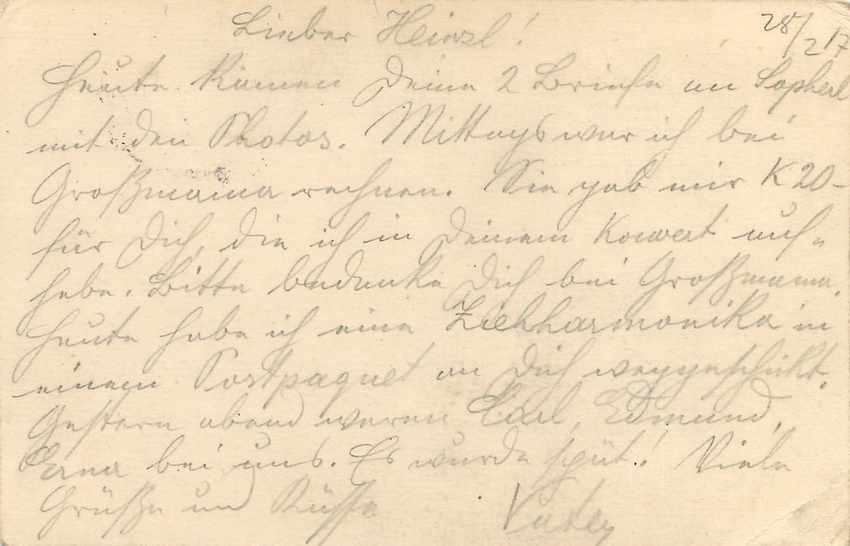 28/2 17
Lieber Heinzl!
Heute kamen Deine 2 Briefe an Sopherl
mit den Photos. Mittags war ich bei
Großmama rechnen. Sie gab mir K 20-
für Dich, die ich in Deinem Kouvert auf-
hebe. Bitte bedanke Dich bei Großmama.
Heute habe ich eine Ziehharmonika in
einem Postpaquet an Dich weggeschickt.
Gestern abend waren Carl, Edmund,
bei uns. Es wurde spät! Viele
Grüße und Küsse Vater